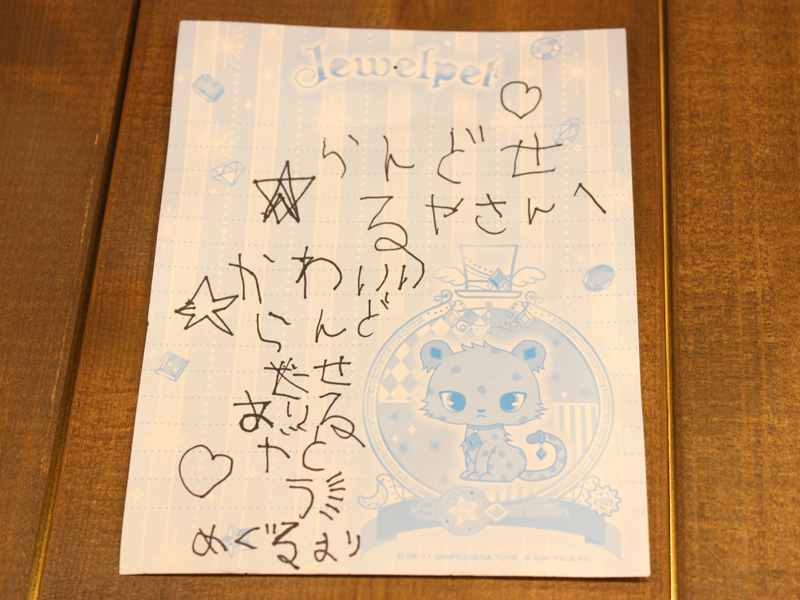 Jewelpet
らんどせ
るやさんへ
かわいい
らんど
せる
あり
がと
う
めぐるより
© '08,'11 SANRIO/SEGA TOYS